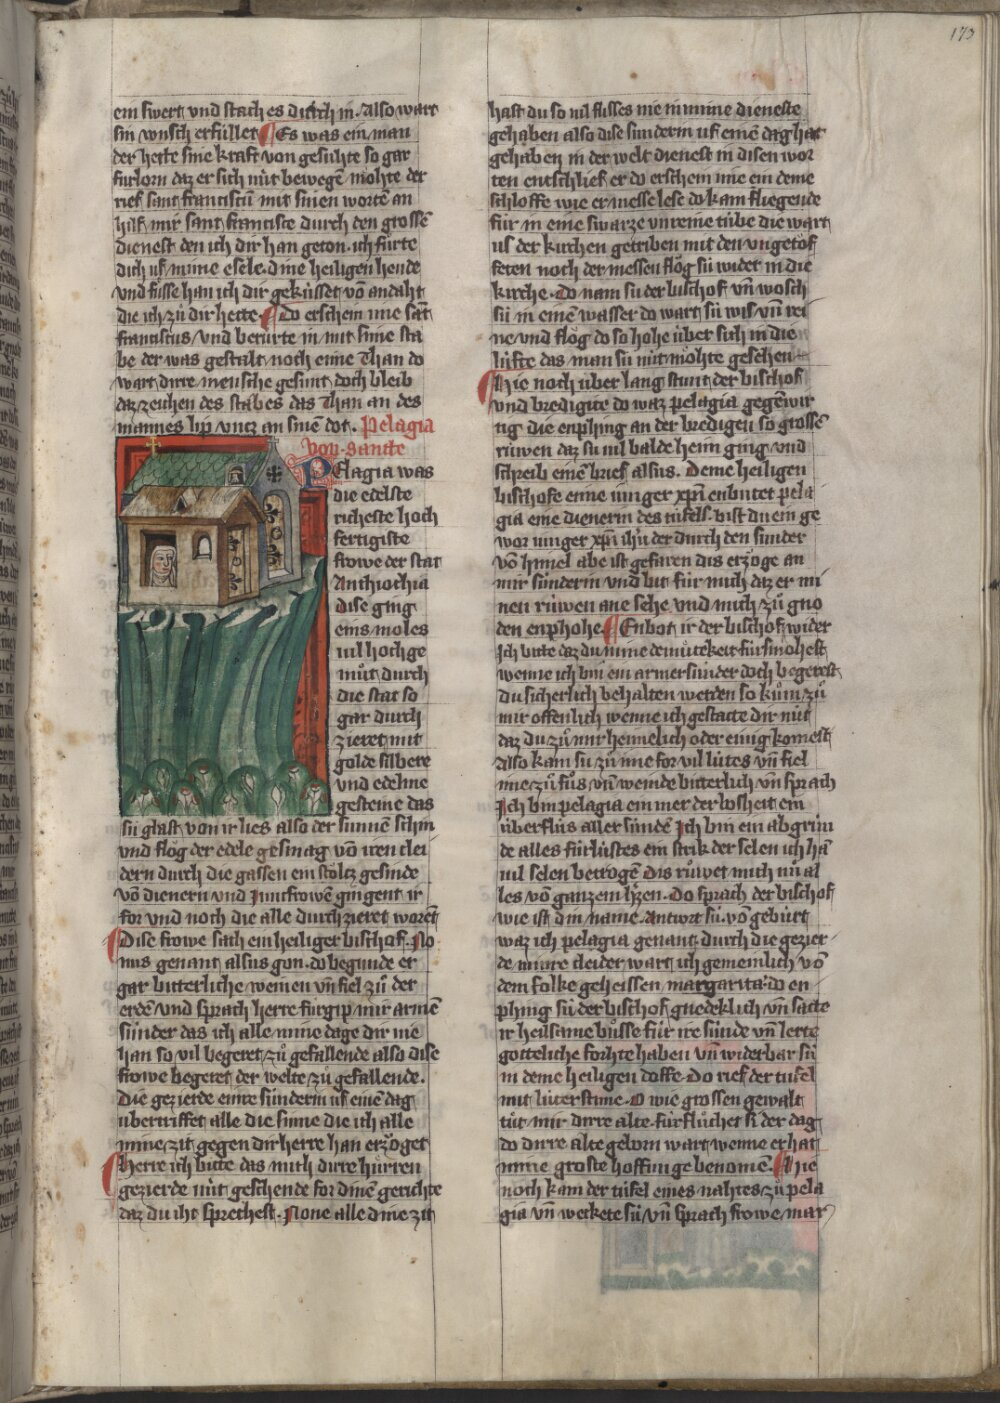 173
em swert vnd stach es durch in. Also wart
sin wnsch erfúllet Es was ein man
der hette sine kraft von gesuhte so gar
furlorn daz er sich nút bewegē mohte der
rief sant franciscū mit sinen wortē an
hilf mir sant francisce durch den grossē
dienest den ich dir han geton. ich fúrte
dich uf mime esele. dine heiligen hende
vnd fússe han ich dir gekússet vō andaht
die ich zů dir hette. Do erschein ime sāt
franciscus vnd berurte in mit sime sta
be der was gestalt noch eime Than do
wart dirre mensche gesunt doch bleib
daz zeichen des stabes das Than an des
mannes lip vntz an sinē dot. Pelagia
von sancte
Pelagia was
die edelste
richeste hoch
fertigiste
frowe der stat
Anthiochia
dise ging
eins moles
vil hochge
můt durch
die stat so
gar durch
zieret mit
golde silbere
vnd edelme
gesteine das
sú glast von ir lies also der sunnē schin
vnd flǒg der edele gesmag vō iren clei
dern durch die gassen ein stoltz gesinde
vō dienern vnd Juncfrowē gingent ir
for vnd noch die alle durch zieret worēt
Dise frowe sach ein heiliger bischof. No
nus genant alsus gon. do begunde er
gar bitterliche weinen vn̄ fiel zů der
erdē vnd sprach herre fúrgip mir armē
súnder das ich alle mine dage dir nie
han so vil begeret zů gefallende also dise
frowe begeret der welte zů gefallende.
Die gezierde einre súnderin uf einē dag
úbertriffet alle die sinne die ich alle
mine zit gegen dir herre han erzoͤget
Herre ich bitte das mich dirre húrren
gezierde nút geschende for dinē gerichte
daz du iht sprechest. None alle dine zit
hast du so vil flisses nie in mime dieneste
gehaben also dise súnderin uf einē dag hat
gehaben in der welt dienest in disen wor
ten entschlief er do erschein ime ein deme
schloffe wie er messe lese do kam fliegende
fúr in eine swarze vnreine túbe die wart
us der kirchen getriben mit den vngetoͤf
feten noch der messen flǒg sú wider in die
kirche. Do nam sú der bischof vn̄ wosch
sú in einē wasser do wart sú wis vn̄ rei
ne vnd flǒg do so hohe úber sich in die
lúfte das man sú nút moͤhte gesehen
Hie noch úber lang stunt der bischof
vnd bredigite do waz pelagia gegēwir
tig die enpfing an der bredigen so grossē
rúwen daz sú vil balde heim ging vnd
schreib einē brief alsus. Deme heiligen
bischofe eime iunger xp̄i enbútet pela
gia eine dienerin des túfels. bist du ein ge
wor iunger xp̄i ih̄u der durch den súnder
vō himel abe ist gefaren dis erzoͤge an
mir súnderin vnd bit fúr mich daz er mi
nen rúwen ane sehe vnd mich zů gno
den enpfohe. Enbot ir der bischof wider
Ich bitte daz du mine demútekeit fúr smohest
wenne ich bin ein armer súnder doch begerest
du sicherlich behalten werden so kům zů
mir offenlich wenne ich gestatte dir nút
daz du zů mir heimelich oder einig komest
Also kam sú zů ime for vil lútes vn̄ fiel
ime zů fůs vn̄ weinde bitterlich vn̄ sprach
Ich bin pelagia ein mer der bosheit ein
úberflus aller súndē Ich bin ein abgrún
de alles fúrlustes ein strik der selen ich hā
vil selen betrogē dis růwet mich nů al
les vō ganzem h'zen. Do sprach der bischof
wie ist din name. Antwrt sú. vō gebúrt
waz ich pelagia genant durch die gezier
de minre cleider wart ich gemeinlich vō
dem folke geheissen margarita do en
pfing sú der bischof gnedeklich vn̄ satte
ir heilsame bůsse fúr ire súnde vn̄ lerte
gotteliche forhte haben vn̄ widerbar sú
in deme heiligen doffe. Do rief der túfel
mit luter stime. O wie grossen gewalt
tůt mir dirre alte. fúrflůchet si der dag
do dirre alte geborn wart wenne er hat
mine groste hoffnunge benomē. Hie
noch kam der túfel eines nahtes zů pela
gia vn̄ weckete sú vn̄ sprach frowe mar